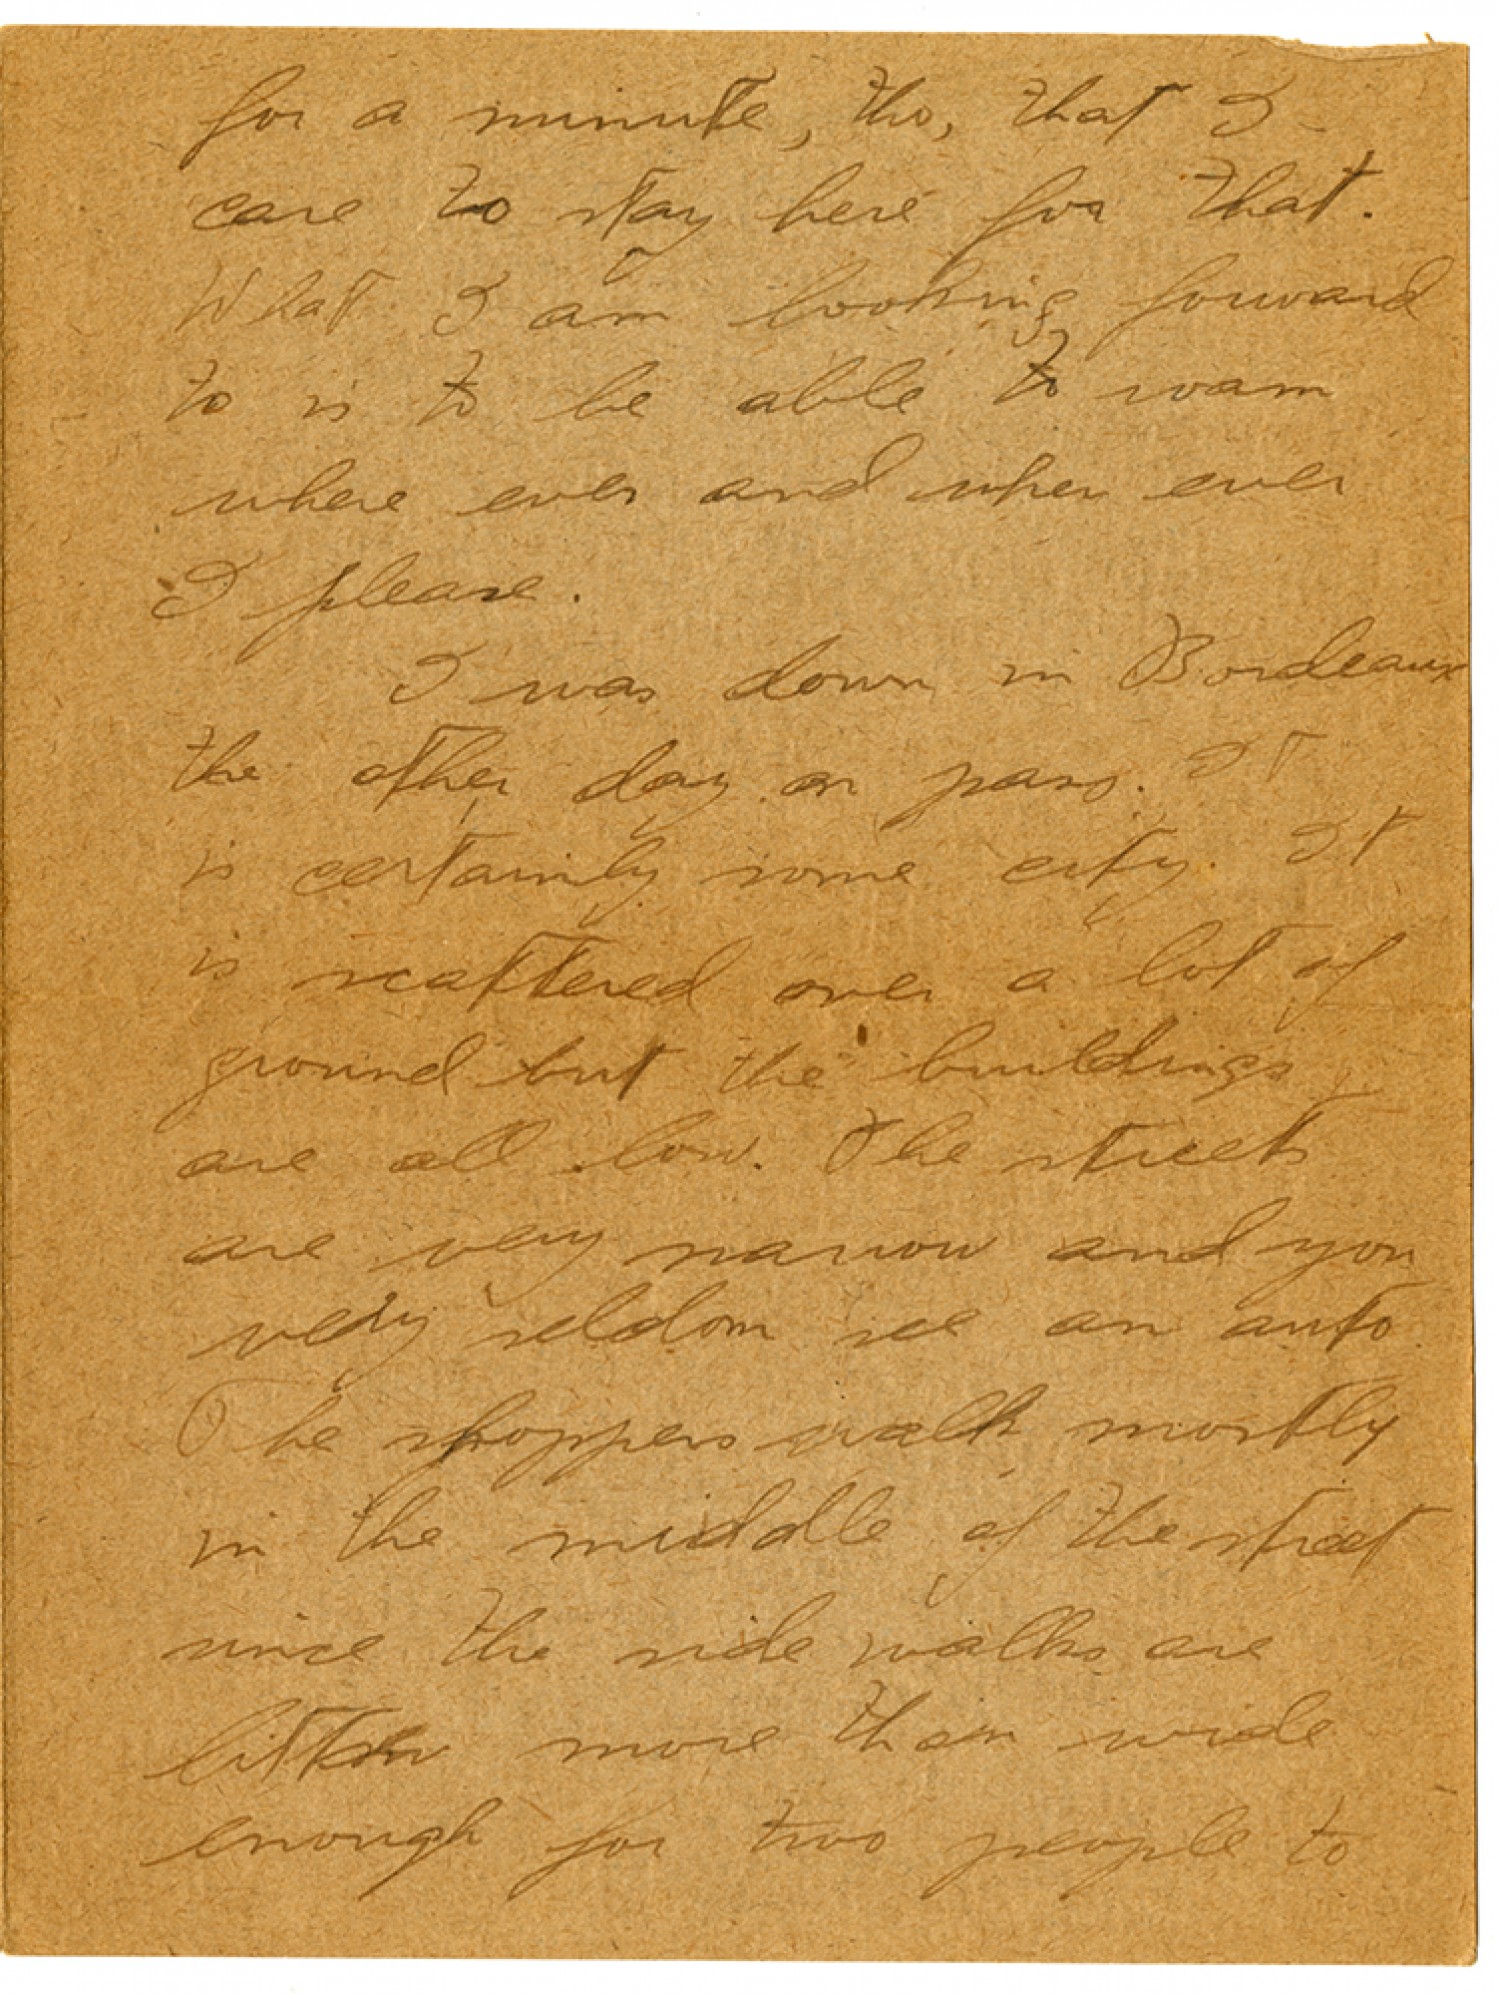 for a minute, tho, that I
care to stay here for that.
What I am looking forward
to is to be able to roam
where ever and when ever
I please.
I was down in Bordeaux
the other day on pass. It
is certainly some city. It
is scattered over a lot of
ground but the buildings
are all low. The streets
are very narrow and you
very seldom see an auto
The shoppers walk mostly
in the middle of the street
since the side walks are
more than wide
enough for two people to